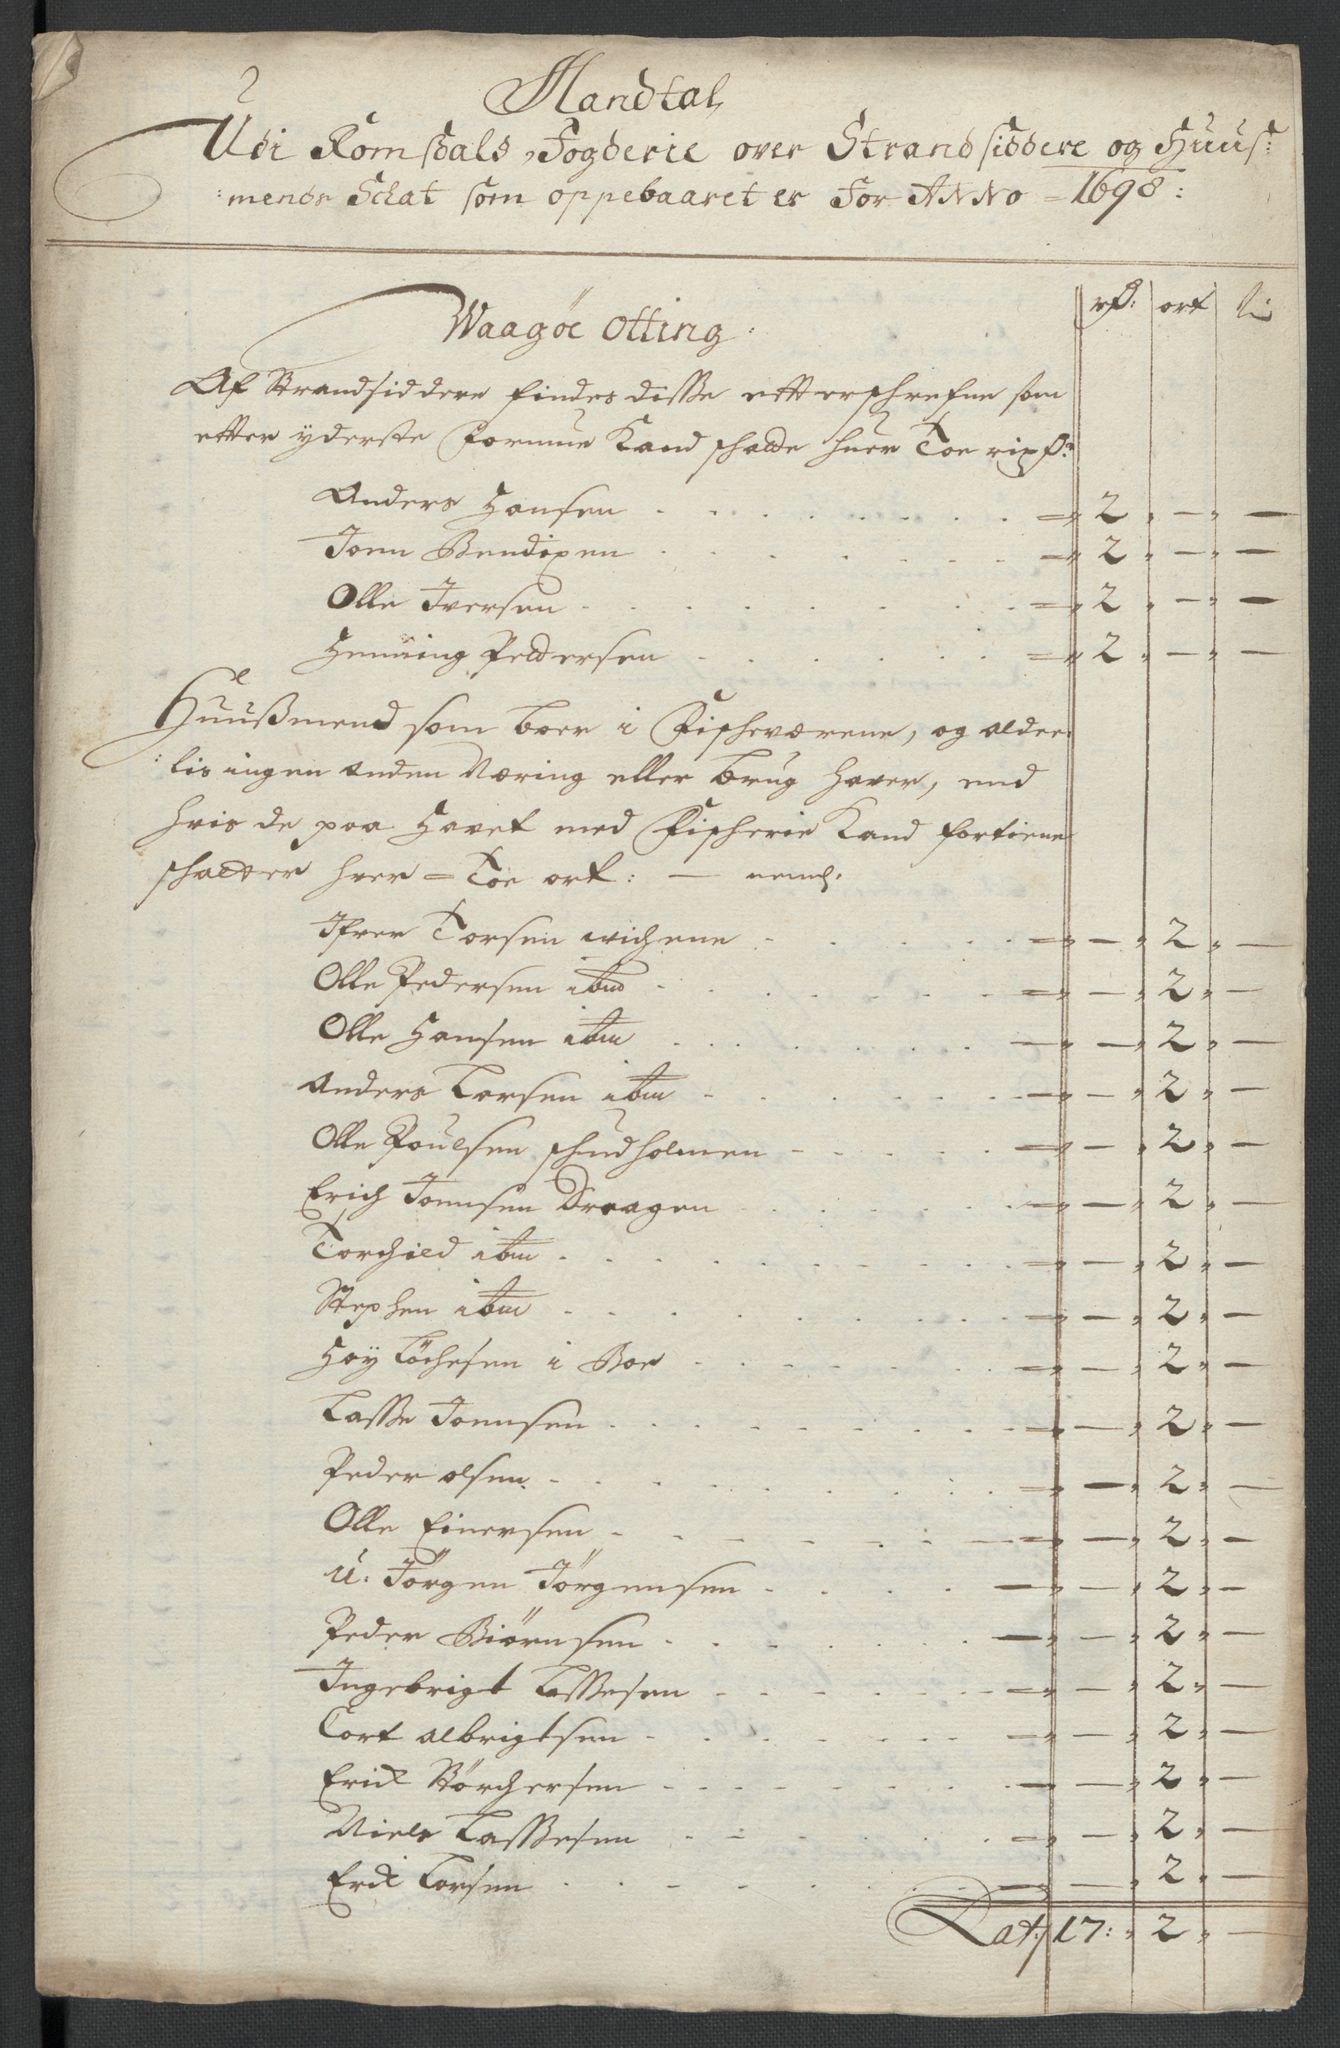 Mandtal
Udi Romsdals Fogderie over Strandsiddere og Huus:
:mends Schat som oppebaaret er For ANNO = 1698:
Waagöe Otting:
rd: ort s:
Af Strandsiddere findes disse etterschrefne som
etter yderste formue Kand schatte huer Toe rixd:
Anders Hansen 2 - -
Jonn Bendixen 2 - -
Olle Iversen 2 - -
Henning Pettersen 2 - -
Huußmend som boer i Fischeværene, og alder:
:lis ingen anden Næring eller brug haver, end
hvis de paa Havet med Fischerie Kand fortiene
schatter hver = Toe ort: — neml.
Ifver Torsen wichene - 2 -
Olle Pedersen ibm - 2 -
Olle Hansen ibm - 2 -
Anders Larsen ibm - 2 -
Olle Poulsen schudholmen - 2 -
Erich Jonnsen Draagen - 2 -
Torchild ibm - 2 -
Stephen ibm - 2 -
Hoy Löchesen i Boe - 2 -
Lasse Jonnsen - 2 -
Peder olsen - 2 -
Olle Einersen - 2 -
U: Jörgen Jörgensen - 2 -
Peder Biörnsen - 2 -
Ingebrigt Lassesen - 2 -
Cort albrigtsen - 2 -
Erich Störchersen - 2 -
Niels Lassesen - 2 -
Erich Larsen - 2 -
Lat: 17: 2 -